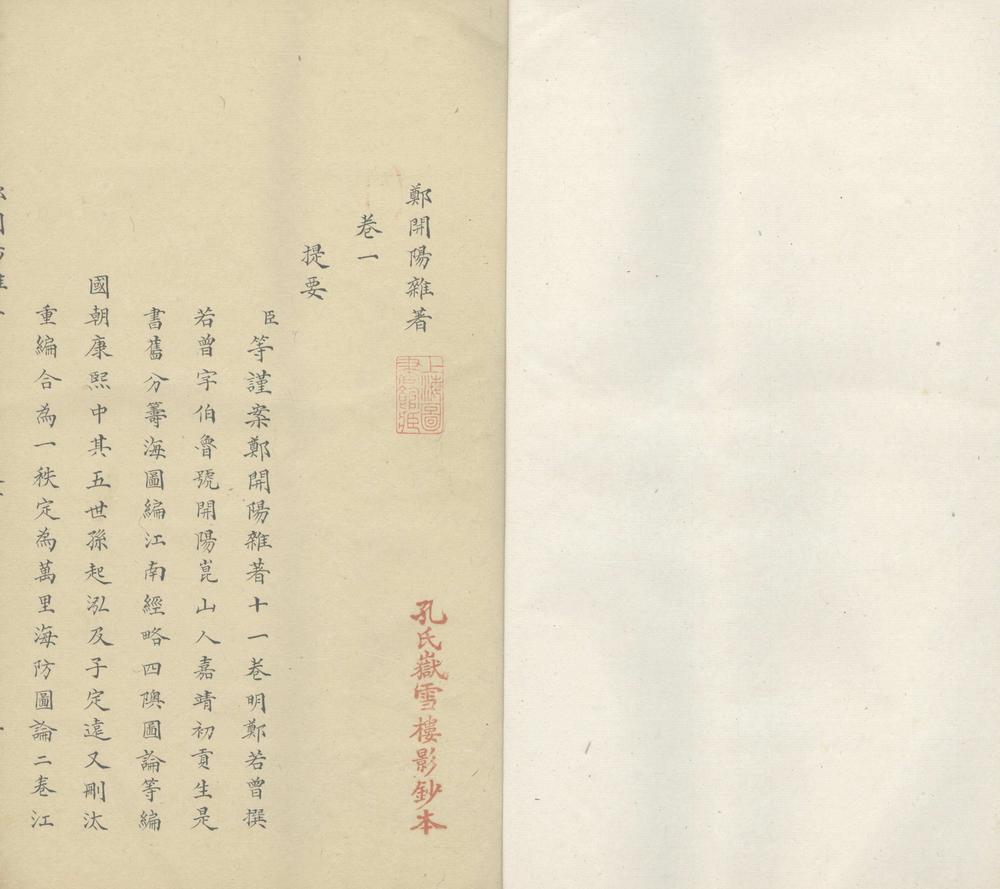 鄭開陽雜著
上海圖書館藏
孔氏嶽雪樓影鈔本
卷一
提要
臣等謹案鄭開陽雜著十一卷明鄭若曾撰
若曾字伯魯號開陽崑山人嘉靖初貢生是
書舊分籌海圖編江南經略四隩圖論等編
國朝康熙中其五世孫起泓及子定遠又刪汰
重編合為一秩定為萬里海防圖論二卷江